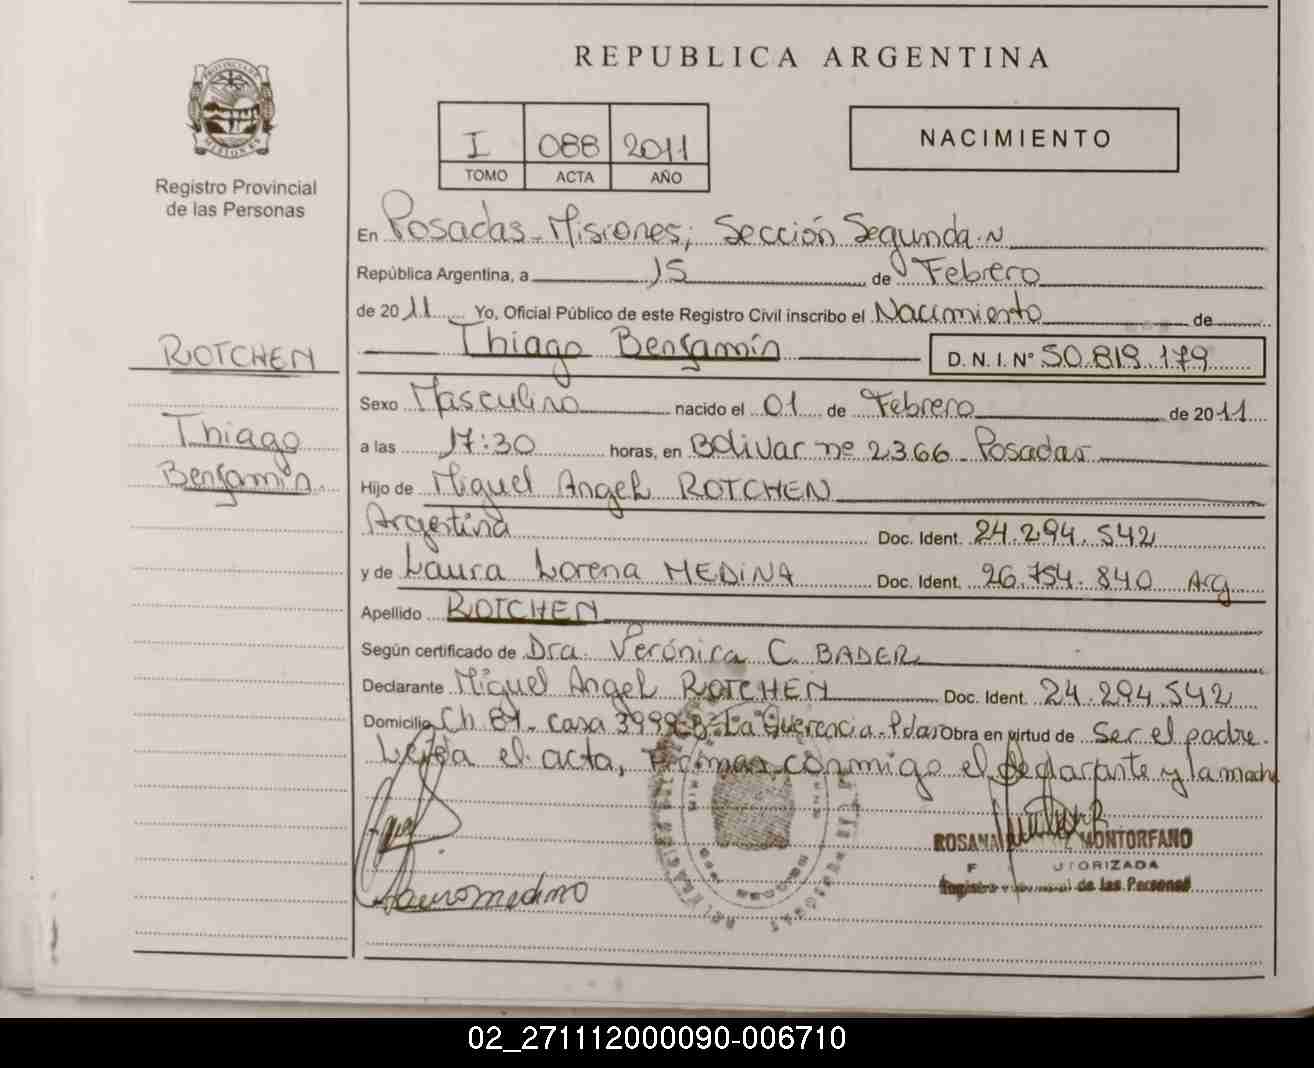 REPUBLICA ARGENTINA
PROVINCIA DE
MISIONES
Registro Provincial
de las Personas
I 088 2011
TOMO ACTA AÑO
NACIMIENTO
En Posadas - Misiones; Sección Segunda
República Argentina, a 15 de Febrero
de 2011 Yo, Oficial Público de este Registro Civil inscribo el Nacimiento de
Thiago Benjamín D. N. I. N° 50.819.179
ROTCHEN
Thiago
Benjamín
Sexo Masculino nacido el 01 de Febrero de 2011
a las 17:30 horas, en Bolivar nº 2366 - Posadas
Hijo de Miguel Angel ROTCHEN
Argentina Doc. Ident. 24.294.542
y de Laura Lorena MEDINA Doc. Ident. 26.754.840 Arg
Apellido ROTCHEN
Según certificado de Dra. Verónica C. BADER
Declarante Miguel Angel ROTCHEN Doc. Ident. 24.294.542
Domicilio Ch 81 - casa 3998 - Bº La Querencia - Pdas Obra en virtud de Ser el padre.
Leída el acta, firman conmigo el declarante y la madre
ROSANA MONTORFANO
AUTORIZADA
Registro Provincial de las Personas
02_271112000090-006710